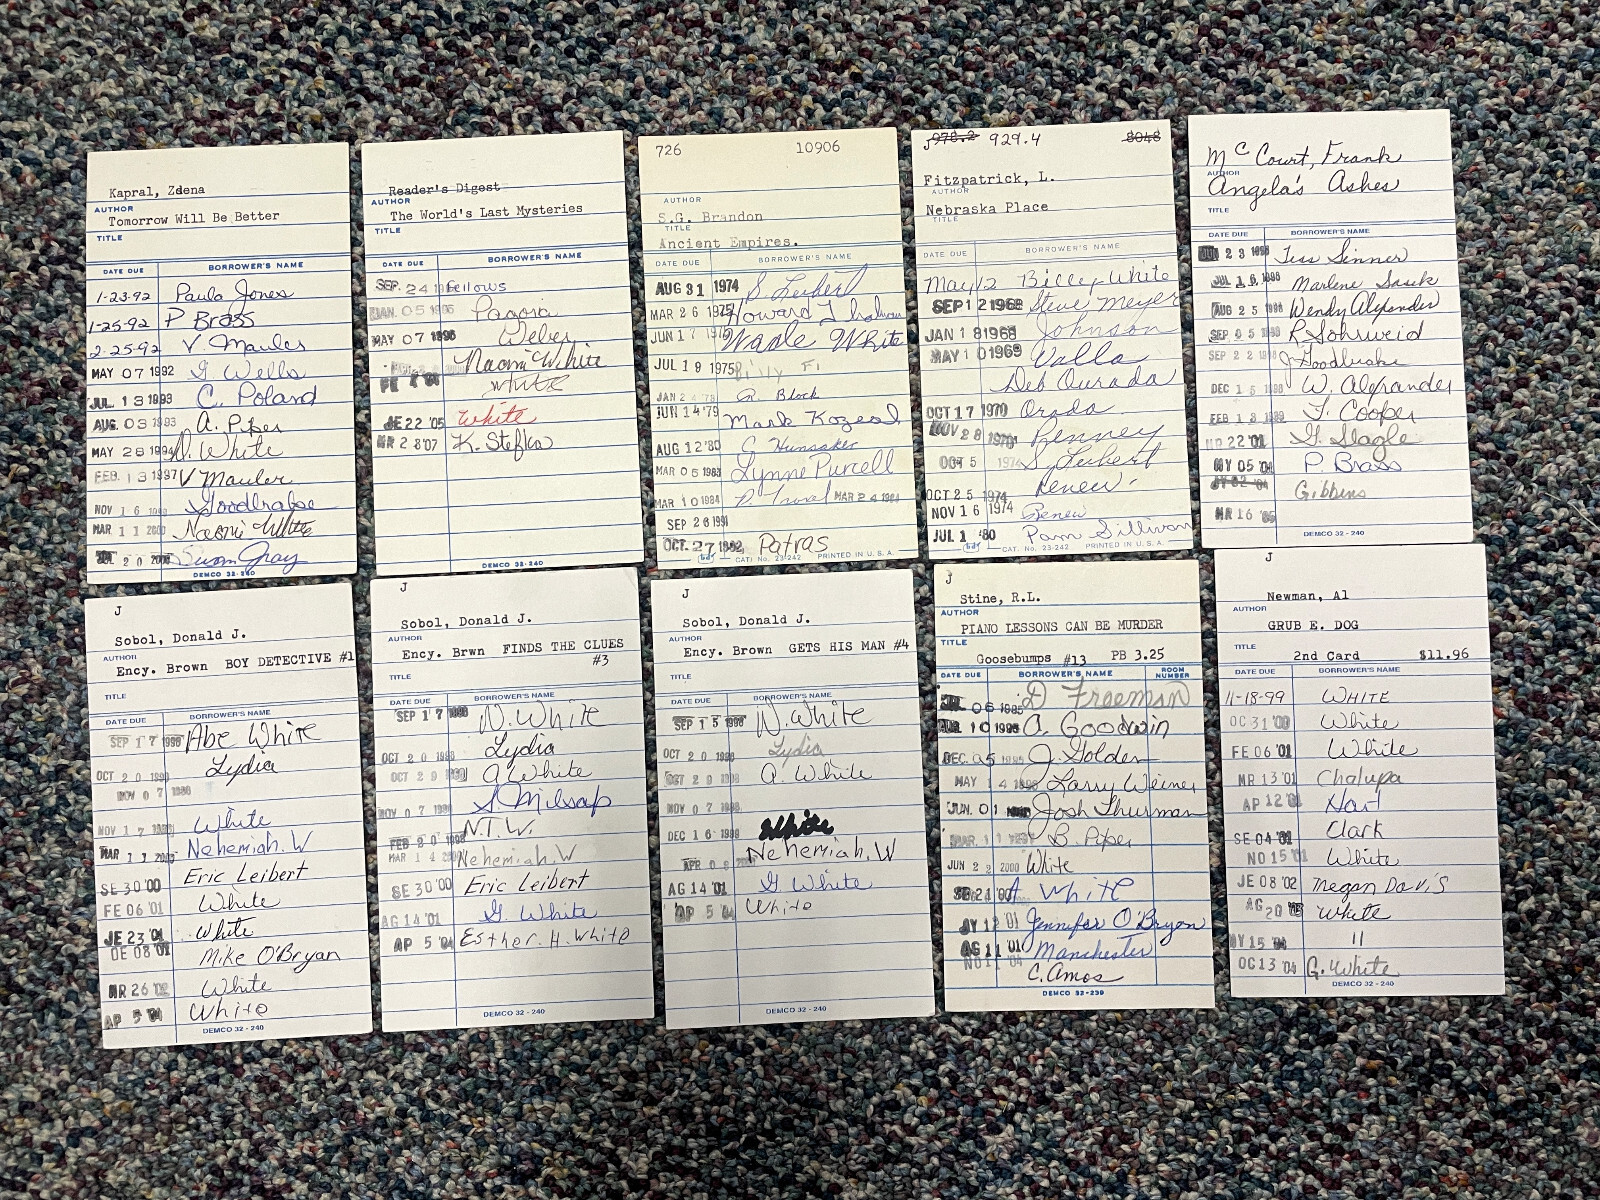 Kapral, Zdena
AUTHOR
Tomorrow Will Be Better
TITLE
DATE DUE BORROWER'S NAME
1-23-92 Paula Jones
1-25-92 P Brass
2-25-92 V. Mauler
MAY 07 1992 G Wells
JUL 13 1993 C. Poland
AUG. 03 1993 A. Piper
MAY 28 1994 D. White
FEB. 13 1997 V Mauler
NOV 16
MAR 11 2000 Naomi White
20 2000 Susan Gray
DEMCO 32-240
Reader's Digest
AUTHOR
The World's Last Mysteries
TITLE
DATE DUE BORROWER'S NAME
SEP. 24 Fellows
JAN. 05 1995 Pagoria
MAY 07 1996 Weber
Naomi White
FE 4 '04 White
JE 22 '05 White
MR 28 '07 K. Stefka
DEMCO 32-240
726 10906
AUTHOR
S.G. Brandon
TITLE
Ancient Empires.
DATE DUE BORROWER'S NAME
AUG 31 1974 S. Leibert
MAR 26 1975 Howard
JUN 17 1975 Wade White
JUL 19 1975 Billy
JAN 2 A. Block
JUN 14 '79 Mark Kozeal
AUG 12 '80 G Hunsaker
MAR 05 1983 Lynne Purcell
MAR 10 1984 MAR 24 1984
SEP 26 1991
OCT. 27 1992 Patras
CAT. No. 23-242 PRINTED IN U.S.A.
J 978.2 929.4 8048
Fitzpatrick, L.
AUTHOR
Nebraska Place
TITLE
DATE DUE BORROWER'S NAME
May 12 Billy White
SEP 12 1968 Steve Meyer
JAN 18 1968 Johnson
MAY 10 1969 Valla
Deb Ourada
OCT 17 1970 Orada
NOV 28 1970 Penney
OCT 5 1974 S. Leibert
OCT 25 1974 Renew
NOV 16 1974 Renew
JUL 1 '80 Pam Sillivan
CAT. No. 23-242 PRINTED IN U.S.A.
McCourt, Frank
AUTHOR
Angela's Ashes
TITLE
DATE DUE BORROWER'S NAME
JUN 23 1998 Tess Sinner
JUL 16 1998 Marlene Sasek
AUG 25 1998 Wendy Alexander
SEP 05 R Sohrweid
SEP 22
DEC 15 1998 W. Alexander
FEB 18 1999 T. Cooper
22 '01 G. Slagle
MY 05 '04 P. Brass
JY 02 '04 Gibbens
MR 16 '05
DEMCO 32-240
J
Sobol, Donald J.
AUTHOR
Ency. Brown BOY DETECTIVE #1
TITLE
DATE DUE BORROWER'S NAME
SEP 17 1998 Abe White
OCT 20 1998 Lydia
NOV 07 1998
NOV 17 White
MAR 11 2000 Nehemiah. W
SE 30 '00 Eric Leibert
FE 06 '01 White
JE 23 '01 White
DE 08 '01 Mike O'Bryan
MR 26 '02 White
AP 5 '04 White
DEMCO 32-240
J
Sobol, Donald J.
AUTHOR
Ency. Brwn FINDS THE CLUES
#3
TITLE
DATE DUE BORROWER'S NAME
SEP 17 1998 N. White
OCT 20 1998 Lydia
OCT 29 A White
NOV 07 1998 S. Milsap
FEB 20 N.T.W.
MAR 14 Nehemiah. W
SE 30 '00 Eric Leibert
AG 14 '01 G. White
AP 5 '04 Esther. H. White
DEMCO 32-240
J
Sobol, Donald J.
AUTHOR
Ency. Brown GETS HIS MAN #4
TITLE
DATE DUE BORROWER'S NAME
SEP 15 1998 N. White
OCT 20 1998 Lydia
OCT 29 1998 A. White
NOV 07 1998
DEC 16 1998 White
APR 0 Nehemiah, W
AG 14 '01 G. White
AP 5 '04 White
DEMCO 32-240
J
Stine, R.L.
AUTHOR
PIANO LESSONS CAN BE MURDER
TITLE
Goosebumps #13 PB 3.25
DATE DUE BORROWER'S NAME ROOM NUMBER
06 1995 D Freeman
10 1995 A. Goodwin
DEC. 05 1995 J. Golden
MAY 14 1996 Larry Weiner
JUN. 01 Josh Thurman
MAR. 11 B. Piper
JUN 22 2000 White
21 '00 A White
JY 12 '01 Jennifer O'Bryan
AG 11 '01 Manchester
NO 11 '04 C. Amos
DEMCO 32-239
J
Newman, Al
AUTHOR
GRUB E. DOG
TITLE
2nd Card $11.96
DATE DUE BORROWER'S NAME
11-18-99 WHITE
OC 31 '00 White
FE 06 '01 White
MR 13 '01 Chalupa
AP 12 '01 Hart
SE 04 '01 Clark
NO 15 '01 White
JE 08 '02 Megan Davis
AG 20 '03 White
MY 15 '04 "
OC 13 '04 G. White
DEMCO 32-240